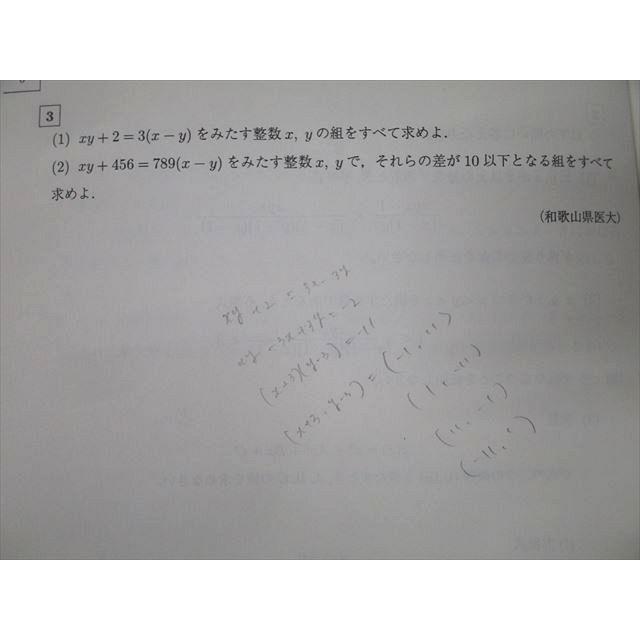 3
(1) xy + 2 = 3(x − y) をみたす整数 x, y の組をすべて求めよ.
(2) xy + 456 = 789(x − y) をみたす整数 x, y で, それらの差が 10 以下となる組をすべて
求めよ.
(和歌山県医大)
xy + 2 = 3x - 3y
xy - 3x + 3y = -2
(x+3)(y-3) = -11
(x+3, y-3) = (-1, 11)
(1, -11)
(11, -1)
(-11, 1)